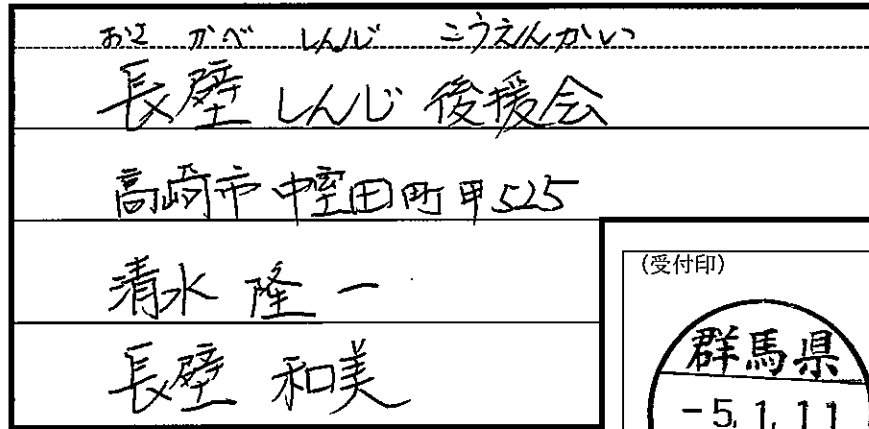 おさ かべ しんじ こうえんかい
長壁 しんじ 後援会
高崎市中室田町甲525
清水 隆一
長壁 和美
(受付印)
群馬県
-5.1.11